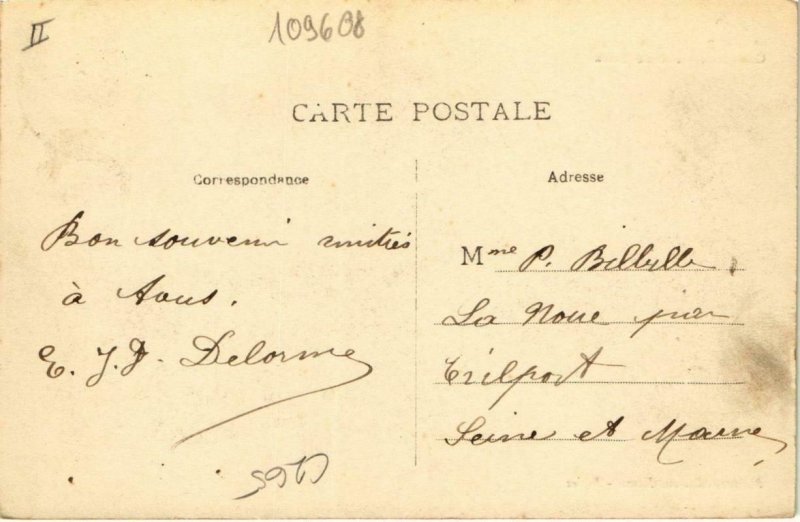 II
109608
CARTE POSTALE
Correspondance
Bon souvenir amitiés
à tous.
E. J. J. Delorme
Adresse
Mme P. Billelle
La Noue par
Trilport
Seine et Marne